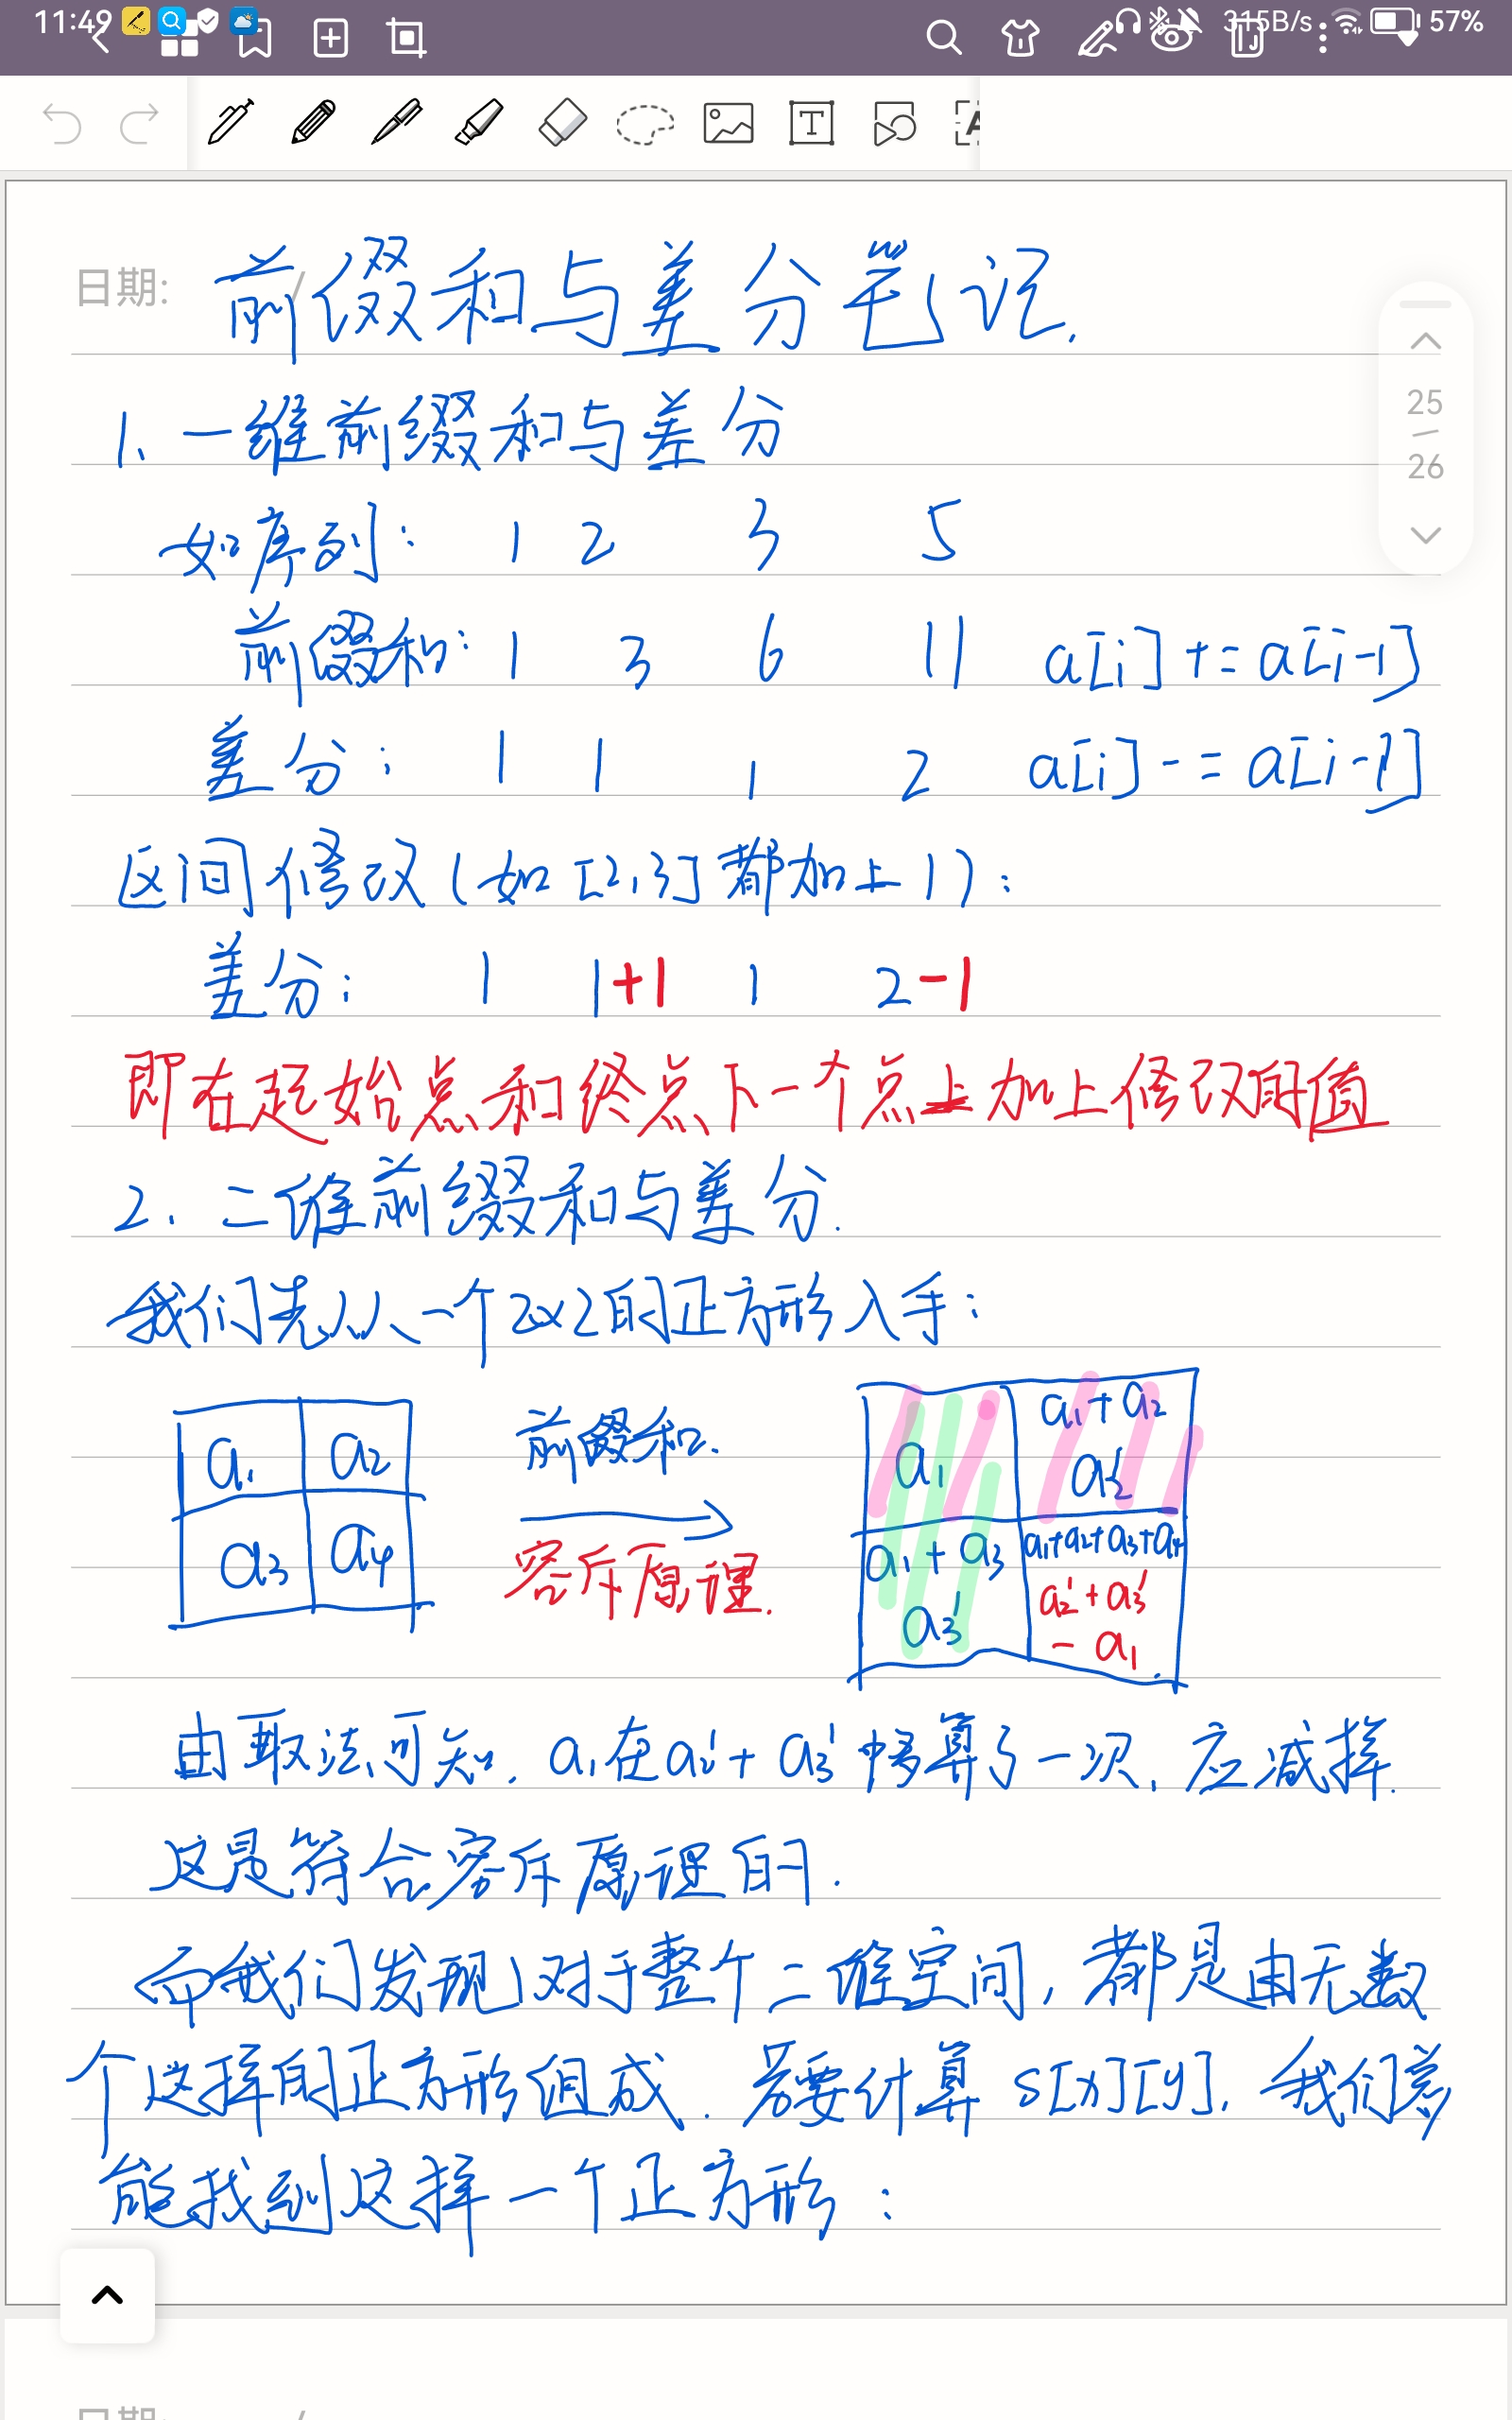 11:49
315B/s
57%
日期: / 前缀和与差分笔记.
25
26
1. 一维前缀和与差分
如序列: 1 2 3 5
前缀和: 1 3 6 11 a[i] += a[i-1]
差分: 1 1 1 2 a[i] -= a[i-1]
区间修改(如[2,3]都加上1):
差分: 1 1+1 1 2-1
即在起始点和终点下一个点上加上修改的值
2. 二维前缀和与差分.
我们先从一个2x2的正方形入手:
a₁ a₂
a₃ a₄
前缀和.
容斥原理.
a₁ a₁+a₂
a₂'
a₁+a₃ a₁+a₂+a₃+a₄
a₃' a₂'+a₃'
- a₁
由取法可知, a₁在a₂'+a₃'中多算了一次, 应减掉.
这是符合容斥原理的.
而我们发现,对于整个二维空间,都是由无数
个这样的正方形组成. 若要计算s[x][y], 我们总
能找到这样一个正方形:
日期: /